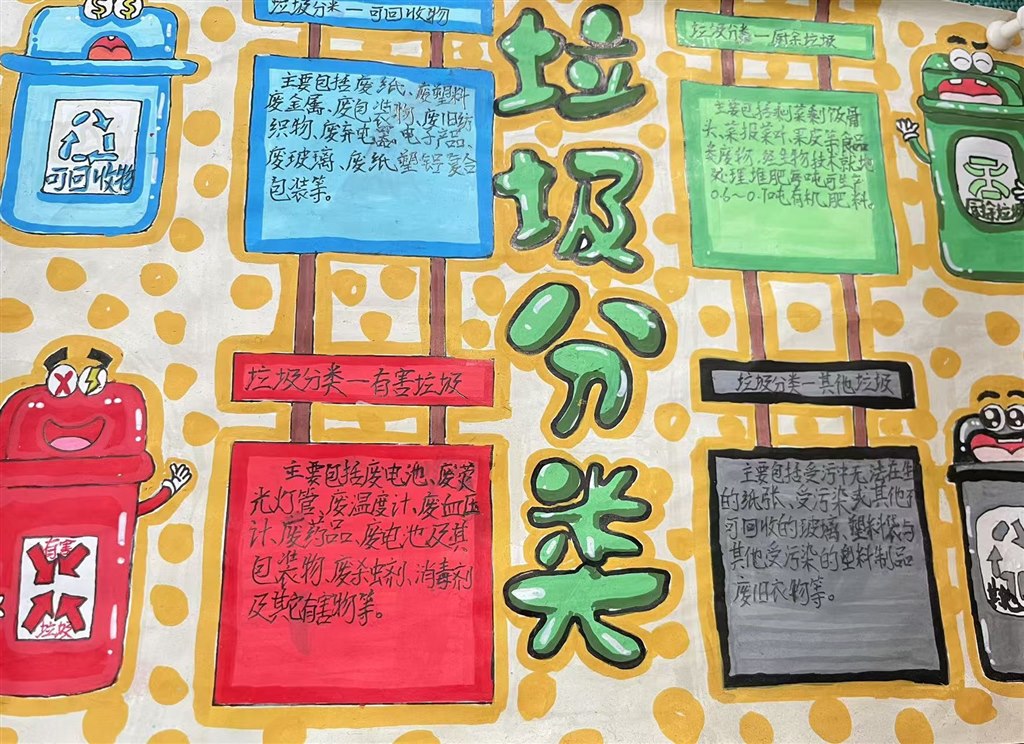 垃圾分类—可回收物
主要包括废纸、废塑料
废金属、废包装物、废旧纺
织物、废弃电器电子产品、
废玻璃、废纸塑铝复合
包装等。
可回收物
垃圾分类
垃圾分类—厨余垃圾
主要包括剩菜剩饭骨
头、菜根菜叶、果皮等食品
类废物，经生物技术就地
处理堆肥每吨可生产
0.6～0.7吨有机肥料。
厨余垃圾
垃圾分类—有害垃圾
主要包括废电池、废荧
光灯管、废温度计、废血压
计、废药品、废电池及其
包装物、废杀虫剂、消毒剂
及其它有害物等。
有害
垃圾
垃圾分类—其他垃圾
主要包括受污
的纸张、受污染或其他不
可回收的玻璃、塑料袋与
其他受污染的塑料制品
废旧衣物等。